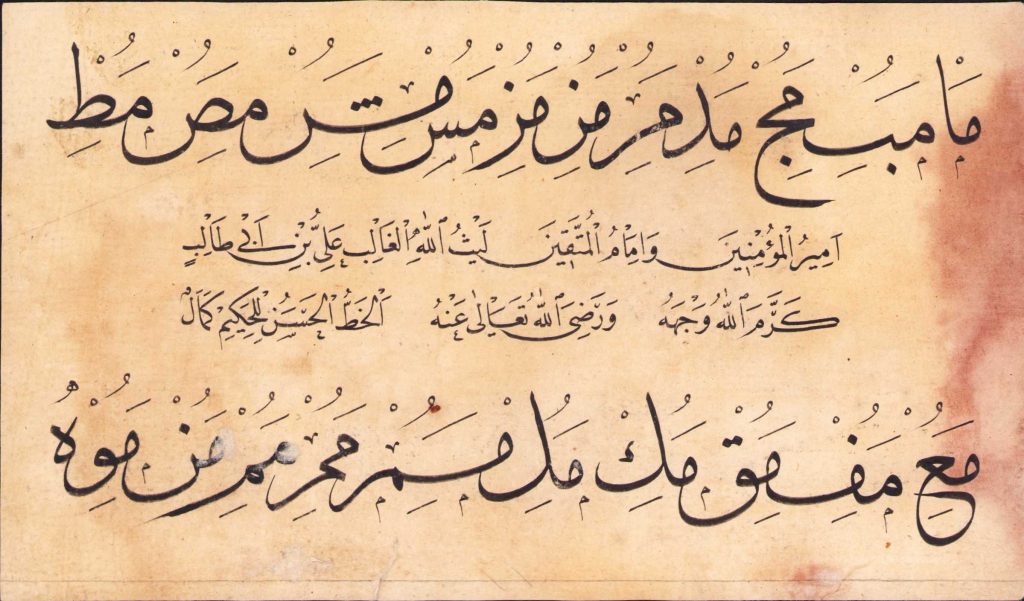 ما مب مج مد مر مز مز مس مس مص مط
اَمِيرُ الْمُؤْمِنِينَ وَاِمَامُ الْمُتَّقِينَ لَيْثُ اللّٰهِ الْغَالِبْ عَلِيُّ بْنِ اَبِي طَالِبٍ
كَرَّمَ اللّٰهُ وَجْهَهُ وَرَضِيَ اللّٰهُ تَعَالٰى عَنْهُ اَلْخَطُّ الْحَسَنُ لِلْحَكِيمِ كَمَالْ
مع مف مق مك مل من مو مه